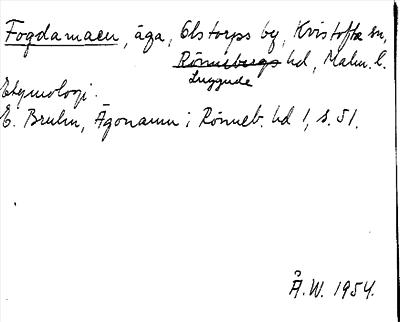 Fogdamaen, äga, Elstorps by, Kvistofta sn,
Rönnebergs hd, Malm. l.
Luggude
Etymologi.
E. Bruhn, Ägonamn i Rönneb. hd 1, s. 51.
Å.W. 1954.